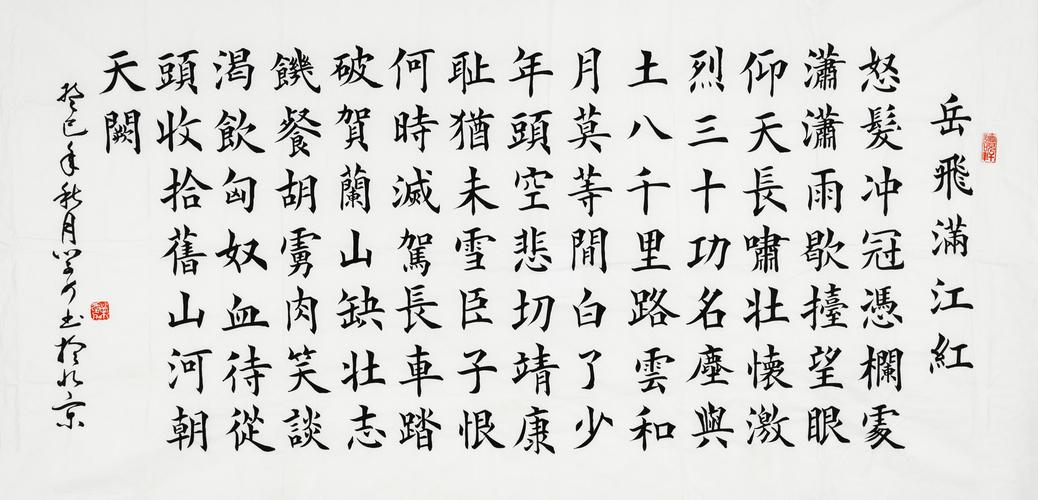 岳飛滿江紅
怒髮冲冠憑欄處
瀟瀟雨歇擡望眼
仰天長嘯壯懷激
烈三十功名塵與
土八千里路雲和
月莫等間白了少
年頭空悲切靖康
耻猶未雪臣子恨
何時滅駕長車踏
破賀蘭山缺壯志
饑餐胡虜肉笑談
渴飲匈奴血待從
頭收拾舊山河朝
天闕
癸巳年秋月书於北京